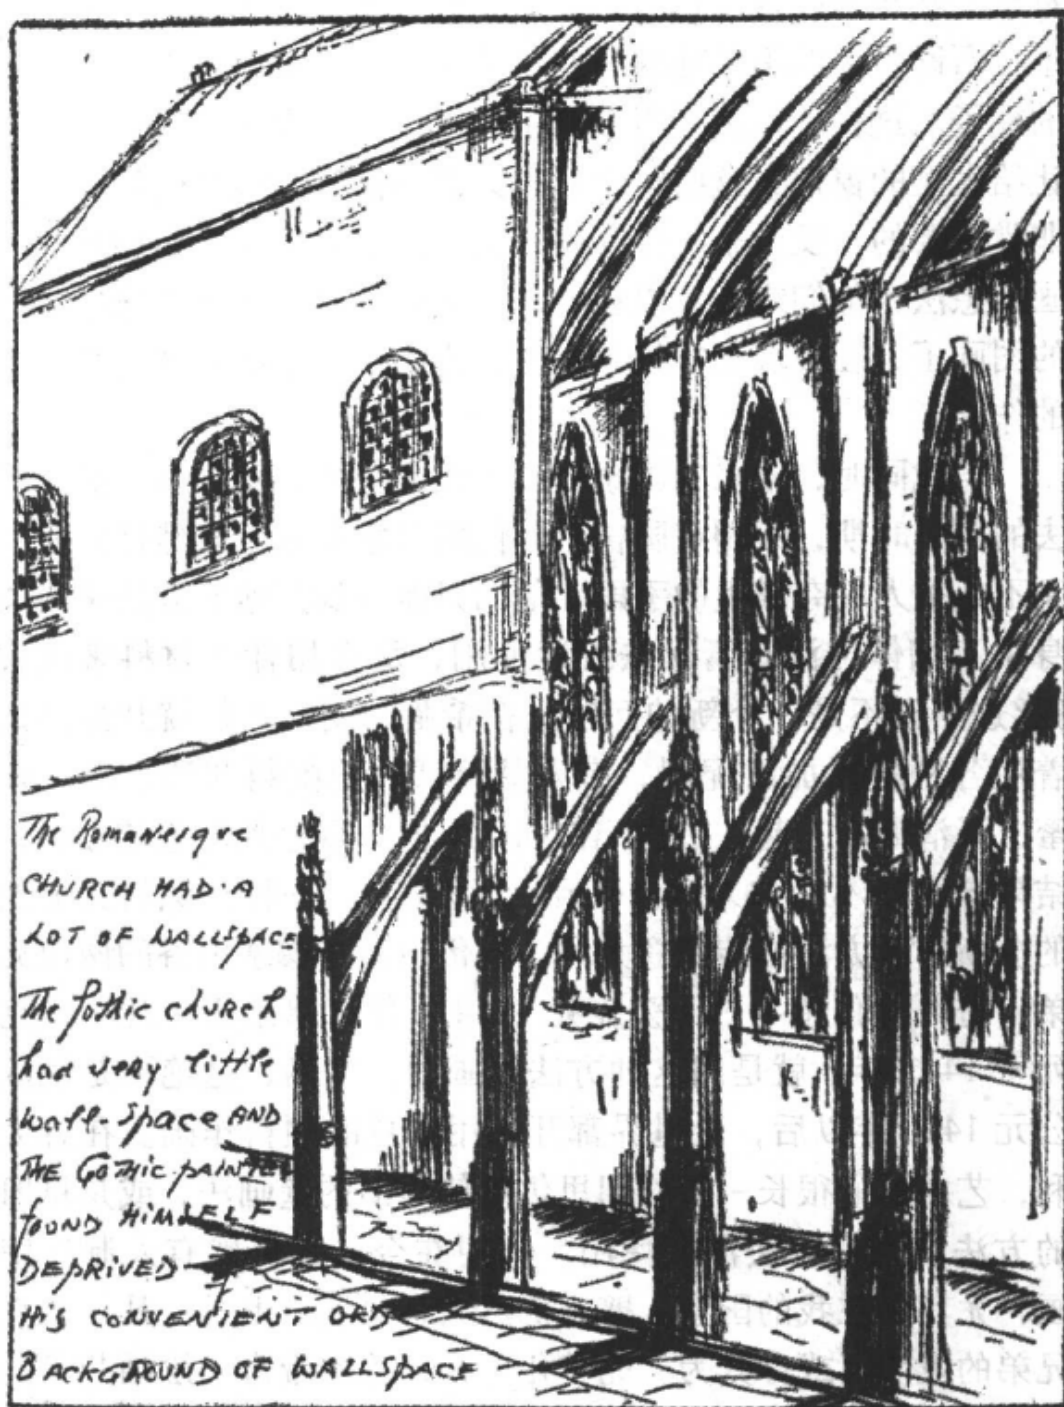 The Romanesque
CHURCH HAD A
LOT OF WALLSPACE
The Gothic church
had very little
wall-space AND
THE Gothic PAINTER
found HIMSELF
DEPRIVED
HIS CONVENIENT
BACKGROUND OF WALLSPACE